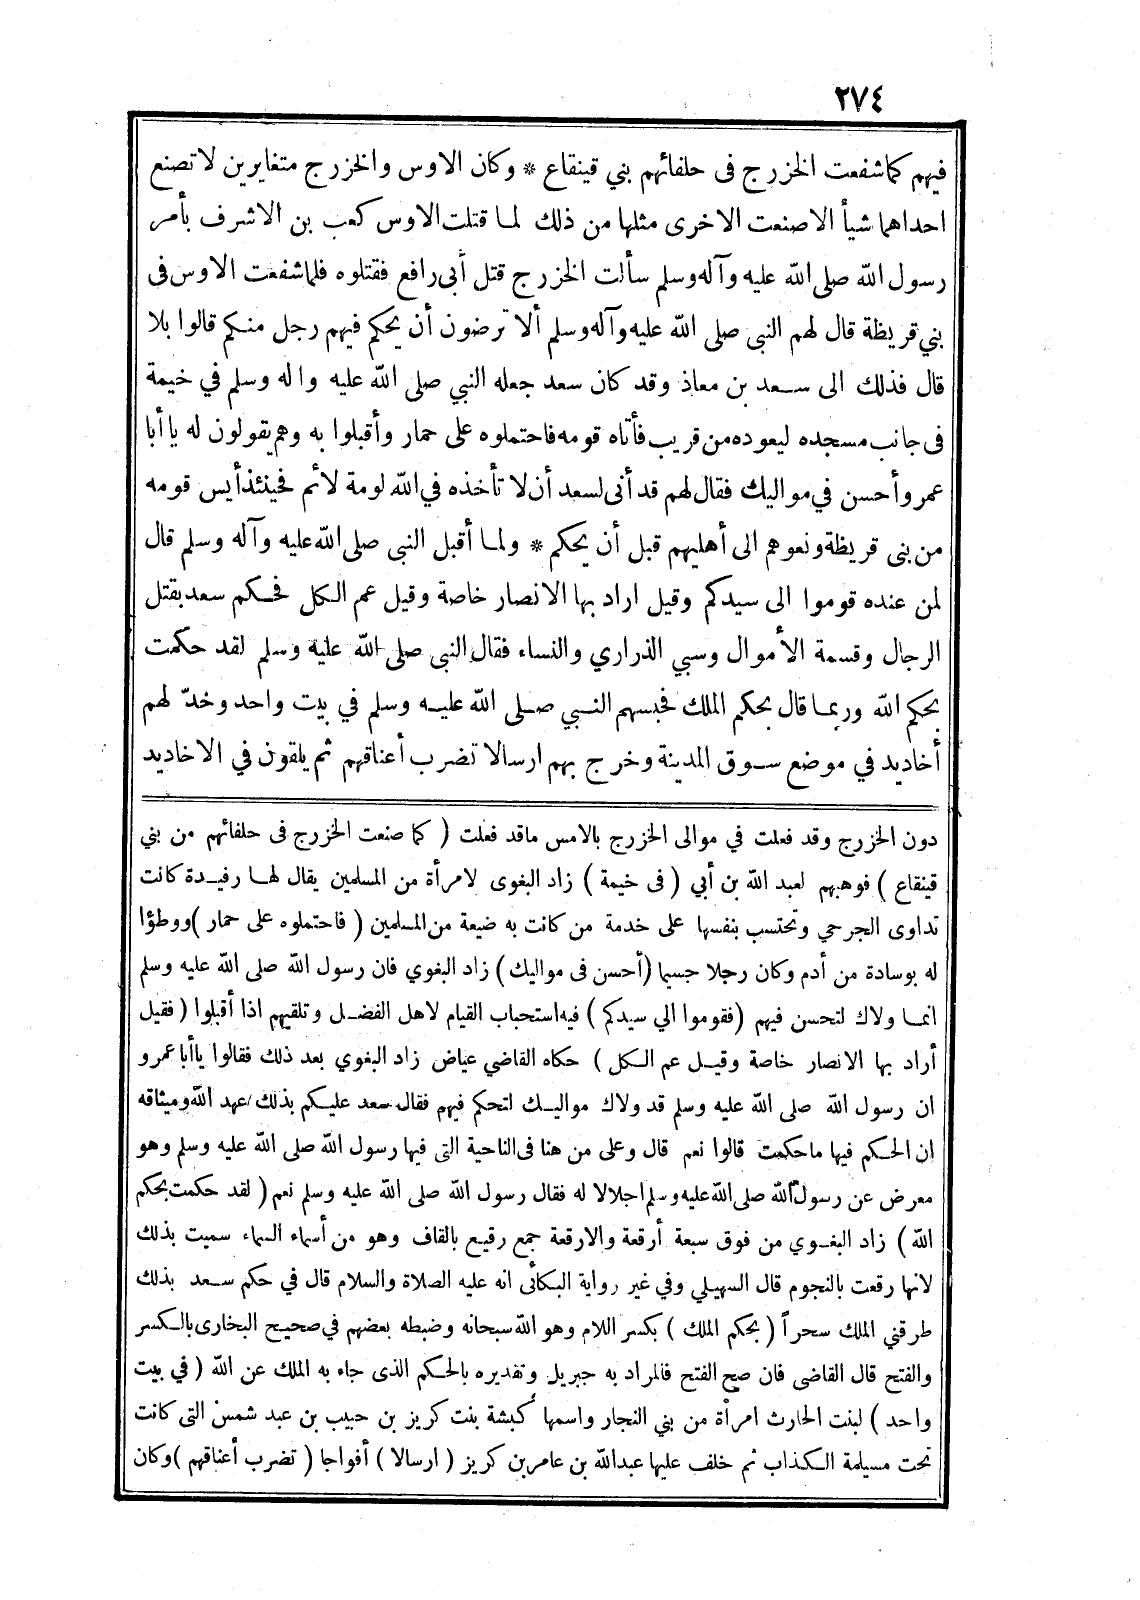 ٢٧٤
فيهم كما شفعت الخزرج فى حلفائهم بني قينقاع * وكان الاوس والخزرج متغايرين لا تصنع
احداهما شيأ الا صنعت الاخرى مثلها من ذلك لما قتلت الاوس كعب بن الاشرف بأمر
رسول الله صلى الله عليه وآله وسلم سألت الخزرج قتل أبى رافع فقتلوه فلما شفعت الاوس فى
بني قريظة قال لهم النبى صلى الله عليه وآله وسلم ألا ترضون أن يحكم فيهم رجل منكم قالوا بلا
قال فذلك الى سعد بن معاذ وقد كان سعد جعله النبي صلى الله عليه واله وسلم في خيمة
فى جانب مسجده ليعوده من قريب فأتاه قومه فاحتملوه على حمار وأقبلوا به وهم يقولون له يا أبا
عمر وأحسن في مواليك فقال لهم قد أنى لسعد أن لا تأخذه في الله لومة لائم فحينئذ أيس قومه
من بنى قريظة ونعوهم الى أهليهم قبل أن يحكم * ولما أقبل النبى صلى الله عليه وآله وسلم قال
لمن عنده قوموا الى سيدكم وقيل اراد بها الانصار خاصة وقيل عم الكل فحكم سعد بقتل
الرجال وقسمة الأموال وسبي الذراري والنساء فقال النبى صلى الله عليه وسلم لقد حكمت
بحكم الله وربما قال بحكم الملك فحبسهم النبي صلى الله عليه وسلم في بيت واحد وخدّ لهم
أخاديد في موضع سوق المدينة وخرج بهم ارسالا تضرب أعناقهم ثم يلقون في الاخاديد
دون الخزرج وقد فعلت في موالى الخزرج بالامس ماقد فعلت ( كما صنعت الخزرج فى حلفائهم من بني
قينقاع ) فوهبهم لعبد الله بن أبي ( فى خيمة ) زاد البغوى لامرأة من المسلمين يقال لها رفيدة كانت
تداوى الجرحي وتحتسب بنفسها على خدمة من كانت به ضيعة من المسلمين ( فاحتملوه على حمار ) ووطؤا
له بوسادة من أدم وكان رجلا جسيما (أحسن فى مواليك) زاد البغوي فان رسول الله صلى الله عليه وسلم
انما ولاك لتحسن فيهم (فقوموا الي سيدكم ) فيه استحباب القيام لاهل الفضل وتلقيهم اذا أقبلوا ( فقيل
أراد بها الانصار خاصة وقيل عم الكل ) حكاه القاضي عياض زاد البغوي بعد ذلك فقالوا يا أبا عمرو
ان رسول الله صلى الله عليه وسلم قد ولاك مواليك لتحكم فيهم فقال سعد عليكم بذلك عهد الله وميثاقه
ان الحكم فيها ما حكمت قالوا نعم قال وعلى من هنا فى الناحية التى فيها رسول الله صلى الله عليه وسلم وهو
معرض عن رسول الله صلى الله عليه وسلم اجلالا له فقال رسول الله صلى الله عليه وسلم نعم ( لقد حكمت بحكم
الله ) زاد البغوي من فوق سبعة أرقعة والارقعة جمع رقيع بالقاف وهو من أسماء السماء سميت بذلك
لانها رقعت بالنجوم قال السهيلي وفي غير رواية البكائى انه عليه الصلاة والسلام قال في حكم سعد بذلك
طرقني الملك سحراً ( بحكم الملك ) بكسر اللام وهو الله سبحانه وضبطه بعضهم في صحيح البخارى بالكسر
والفتح قال القاضى فان صح الفتح فالمراد به جبريل وتقديره بالحكم الذى جاء به الملك عن الله ( في بيت
واحد ) لبنت الحارث امرأة من بني النجار واسمها كبشة بنت كريز بن حبيب بن عبد شمس التى كانت
تحت مسيلمة الكذاب ثم خلف عليها عبدالله بن عامر بن كريز ( ارسالا ) أفواجا ( تضرب أعناقهم ) وكان